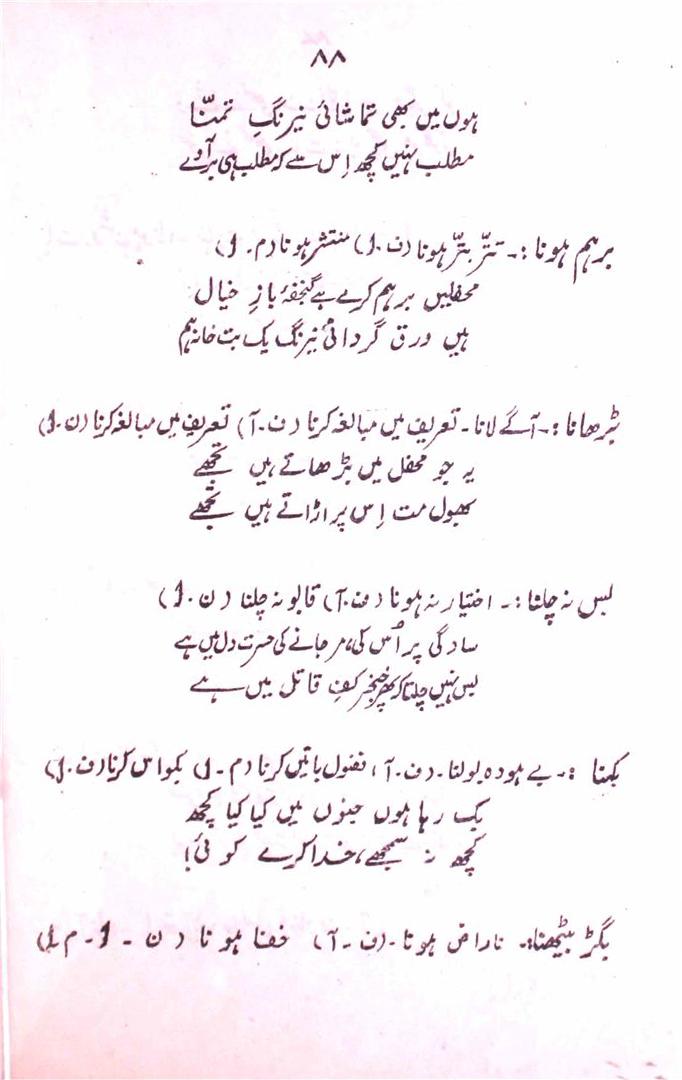 ۸۸
ہوں میں بھی تماشائی نیرنگِ تمنّا
مطلب نہیں کچھ اِس سے کہ مطلب ہی بر آوے
برہم ہونا :۔ تتّر بتّر ہونا (ف۔1) منتشر ہونا (م۔1)
محفلیں برہم کرے ہے گنجفۂ بازِ خیال
ہیں ورق گردانیٔ نیرنگ یک بت خانہ ہم
بڑھانا :۔ آگے لانا۔ تعریف میں مبالغہ کرنا (ف۔آ) تعریف میں مبالغہ کرنا (ن۔1)
یہ جو محفل میں بڑھاتے ہیں تجھے
بھول مت اِس پر اڑاتے ہیں تجھے
بس نہ چلنا :۔ اختیار نہ ہونا (ف۔آ) قابو نہ چلنا (ن۔1)
سادگی پر اُس کی، مر جانے کی حسرت دل میں ہے
بس نہیں چلتا کہ پھر خنجر کفِ قاتل میں ہے
بکنا :۔ بے ہودہ بولنا۔ (ف۔آ، فضول باتیں کرنا (م۔1) بکواس کرنا (ف۔1)
بک رہا ہوں جنوں میں کیا کیا کچھ
کچھ نہ سمجھے، خدا کرے کوئی!
بگڑ بیٹھنا:۔ ناراض ہونا۔ (ف۔آ) خفا ہونا (ن۔1۔م1)